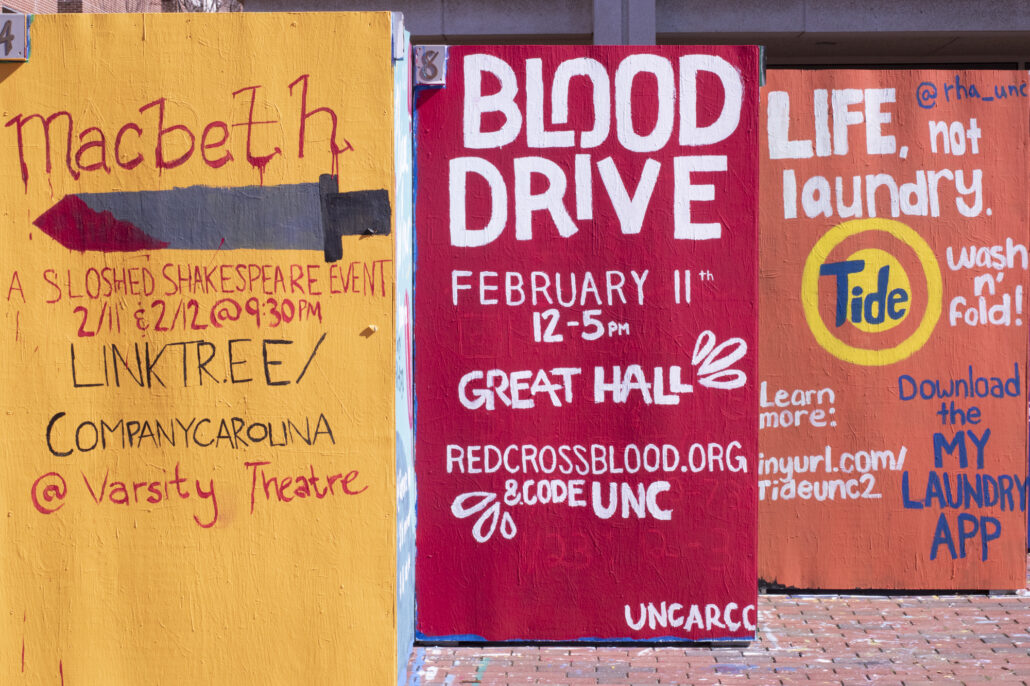 4
macbeth
A SLOSHED SHAKESPEARE EVENT
2/11 & 2/12 @ 9:30PM
LINKTR.EE/
COMPANYCAROLINA
@ Varsity Theatre
8
BLOOD
DRIVE
FEBRUARY 11th
12-5PM
GREAT HALL
REDCROSSBLOOD.ORG
& CODE UNC
UNCARCC
@rha_unc
LIFE, not
laundry.
Tide
wash
n'
fold!
Learn
more:
inyurl.com/
Tideunc2
Download
the
MY
LAUNDRY
APP